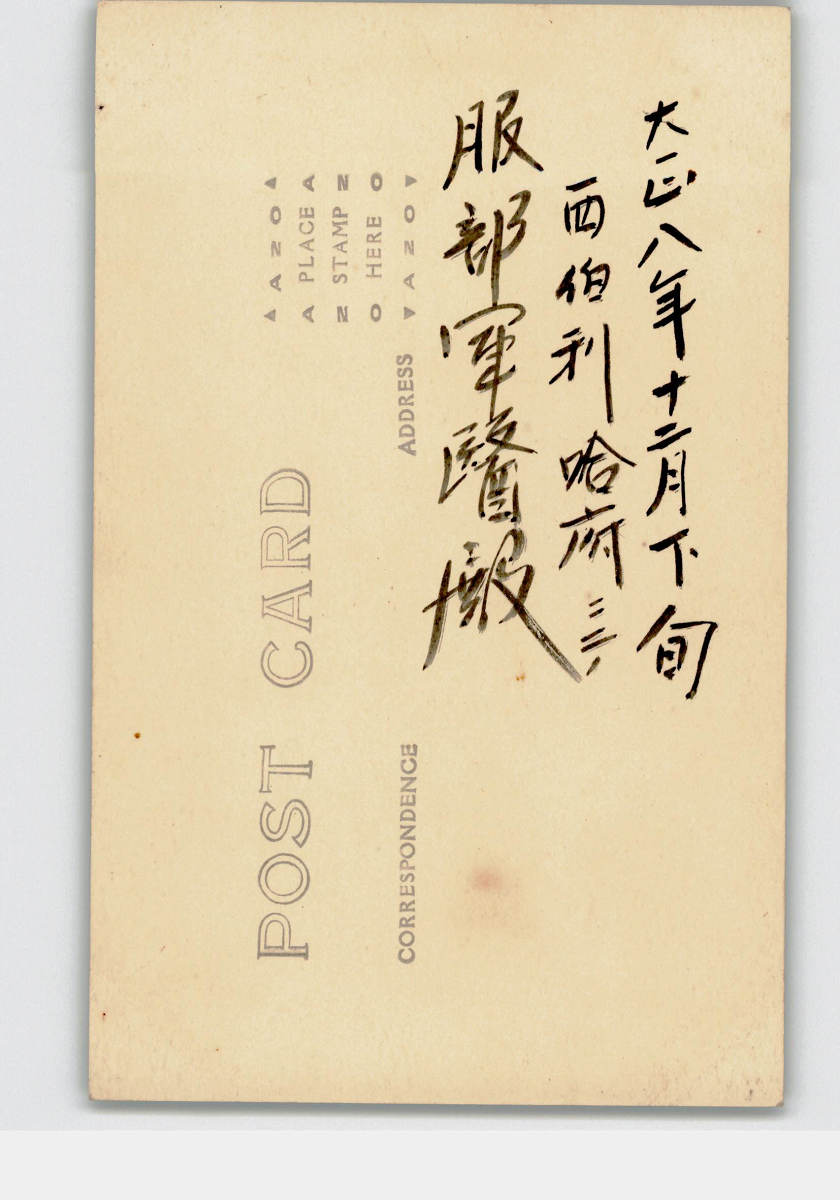 大正八年十二月下旬
西伯利哈府ニテ
服部軍醫殿
POST CARD
CORRESPONDENCE
ADDRESS
▲AZO▲
A PLACE A
Z STAMP Z
O HERE O
▼AZO▼